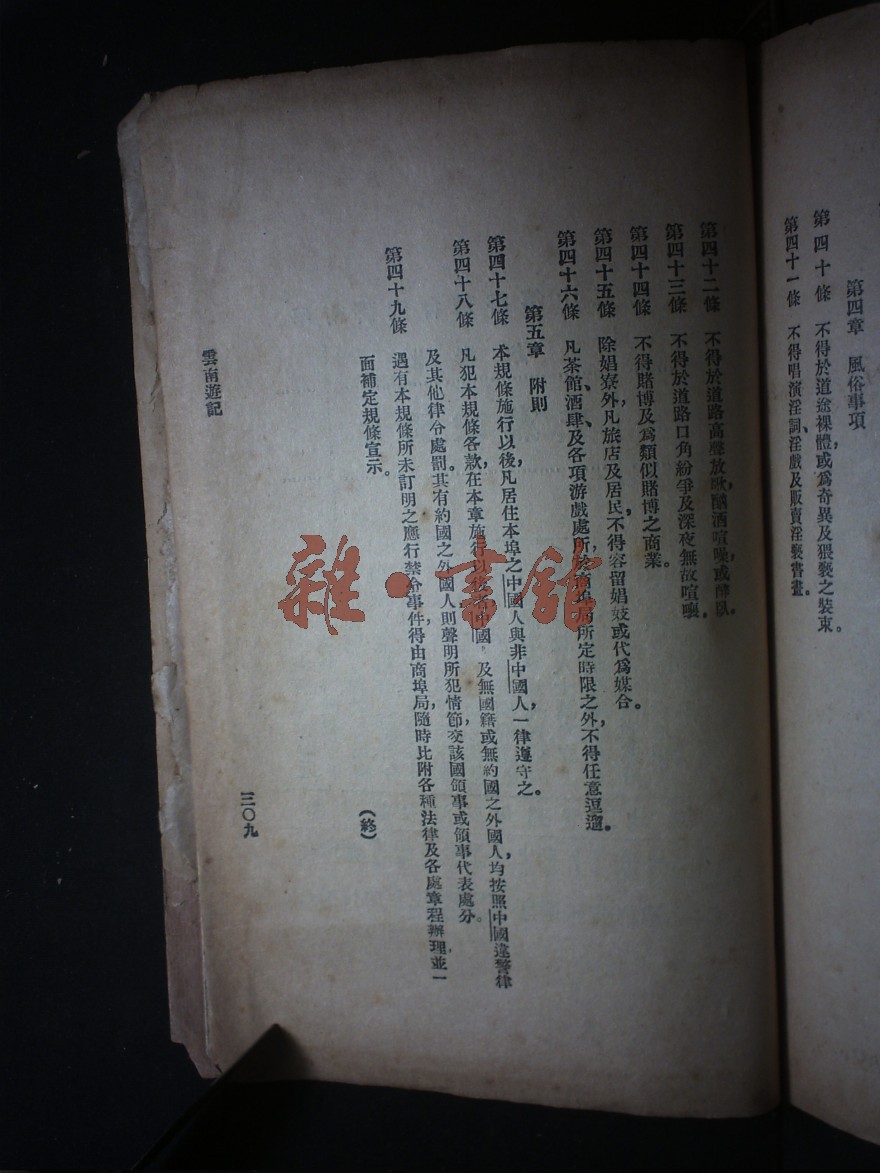 第四章　風俗事項
第四十條　不得於道途裸體或爲奇異及猥褻之裝束。
第四十一條　不得唱演淫詞、淫戲及販賣淫褻書畫。
第四十二條　不得於道路高聲放歌，酗酒喧噪，或醉臥。
第四十三條　不得於道路口角紛爭及深夜無故喧嚷。
第四十四條　不得賭博及爲類似賭博之商業。
第四十五條　除娼寮外，凡旅店及居民，不得容留娼妓或代爲媒合。
第四十六條　凡茶館、酒肆、及各項游戲處所，於商埠局所定時限之外，不得任意逗遛。
第五章　附則
第四十七條　本規條施行以後，凡居住本埠之中國人與非中國人，一律遵守之。
第四十八條　凡犯本規條各款，在本章施行以後中國及無國籍或無約國之外國人，均按照中國違警律
及其他律令處罰。其有約國之外國人則聲明所犯情節，交該國領事或領事代表處分。
第四十九條　遇有本規條所未訂明之應行禁令事件，得由商埠局隨時比附各種法律及各處章程辦理，並一
面補定規條宣示。
（終）
雲南遊記
三〇九
雜·書館